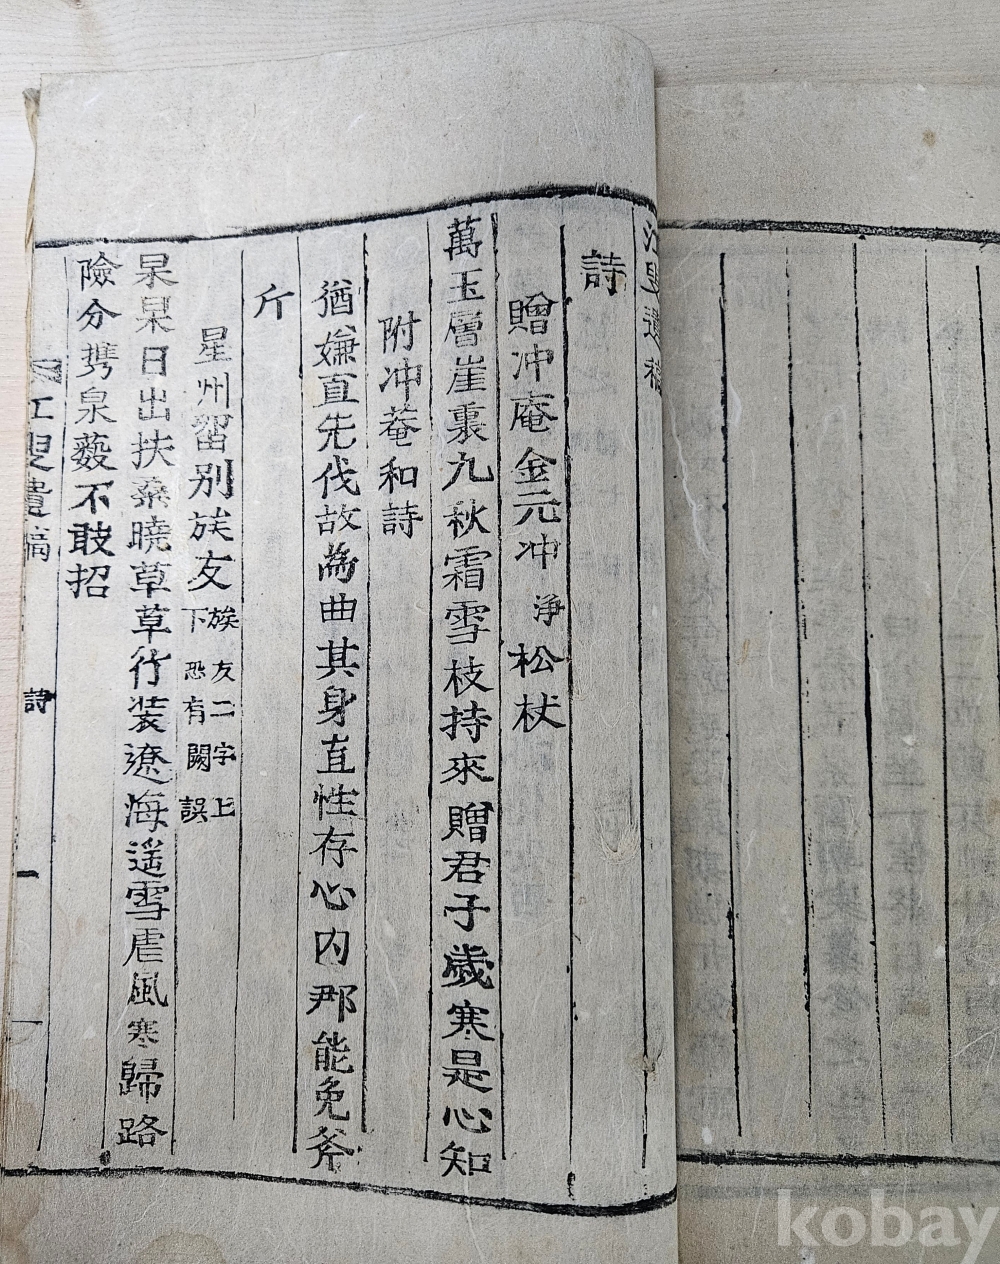 江叟遺稿
詩
贈冲庵金元冲淨松杖
萬玉層崖裏九秋霜雪枝持來贈君子歲寒是心知
附冲菴和詩
猶嫌直先伐故為曲其身直性存心內那能免斧
斤
星州留別族友族友二字上下恐有闕誤
杲杲日出扶桑曉草草行装遼海遥雪虐風寒歸路
險分携泉藪不敢招
江叟遺稿 詩 一
kobay